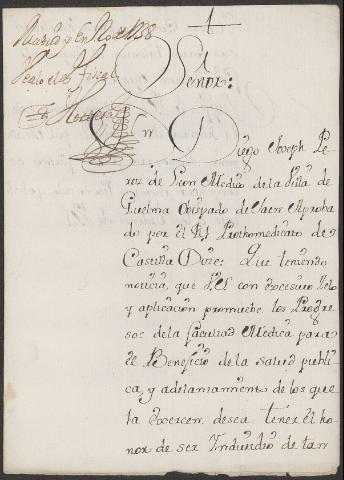 Madrid y En
Vealo el S.r Fiscal
Señor:
Dn Diego Joseph Pe
rez de Leon Medico de la Villa de
Guelma Obispado de Jaen Aproba
do por el Rl Prothomedicato de
Castilla Dize: Que teniendo
noticia, que V.S. con excesivo Zelo
y aplicacion promuebe los Progre
sos de la facultad Medica para
el Beneficio de la salud publi
ca, y adelantamiento de los que
la Exercen, desea tener el ho
nor de ser Individuo de tan